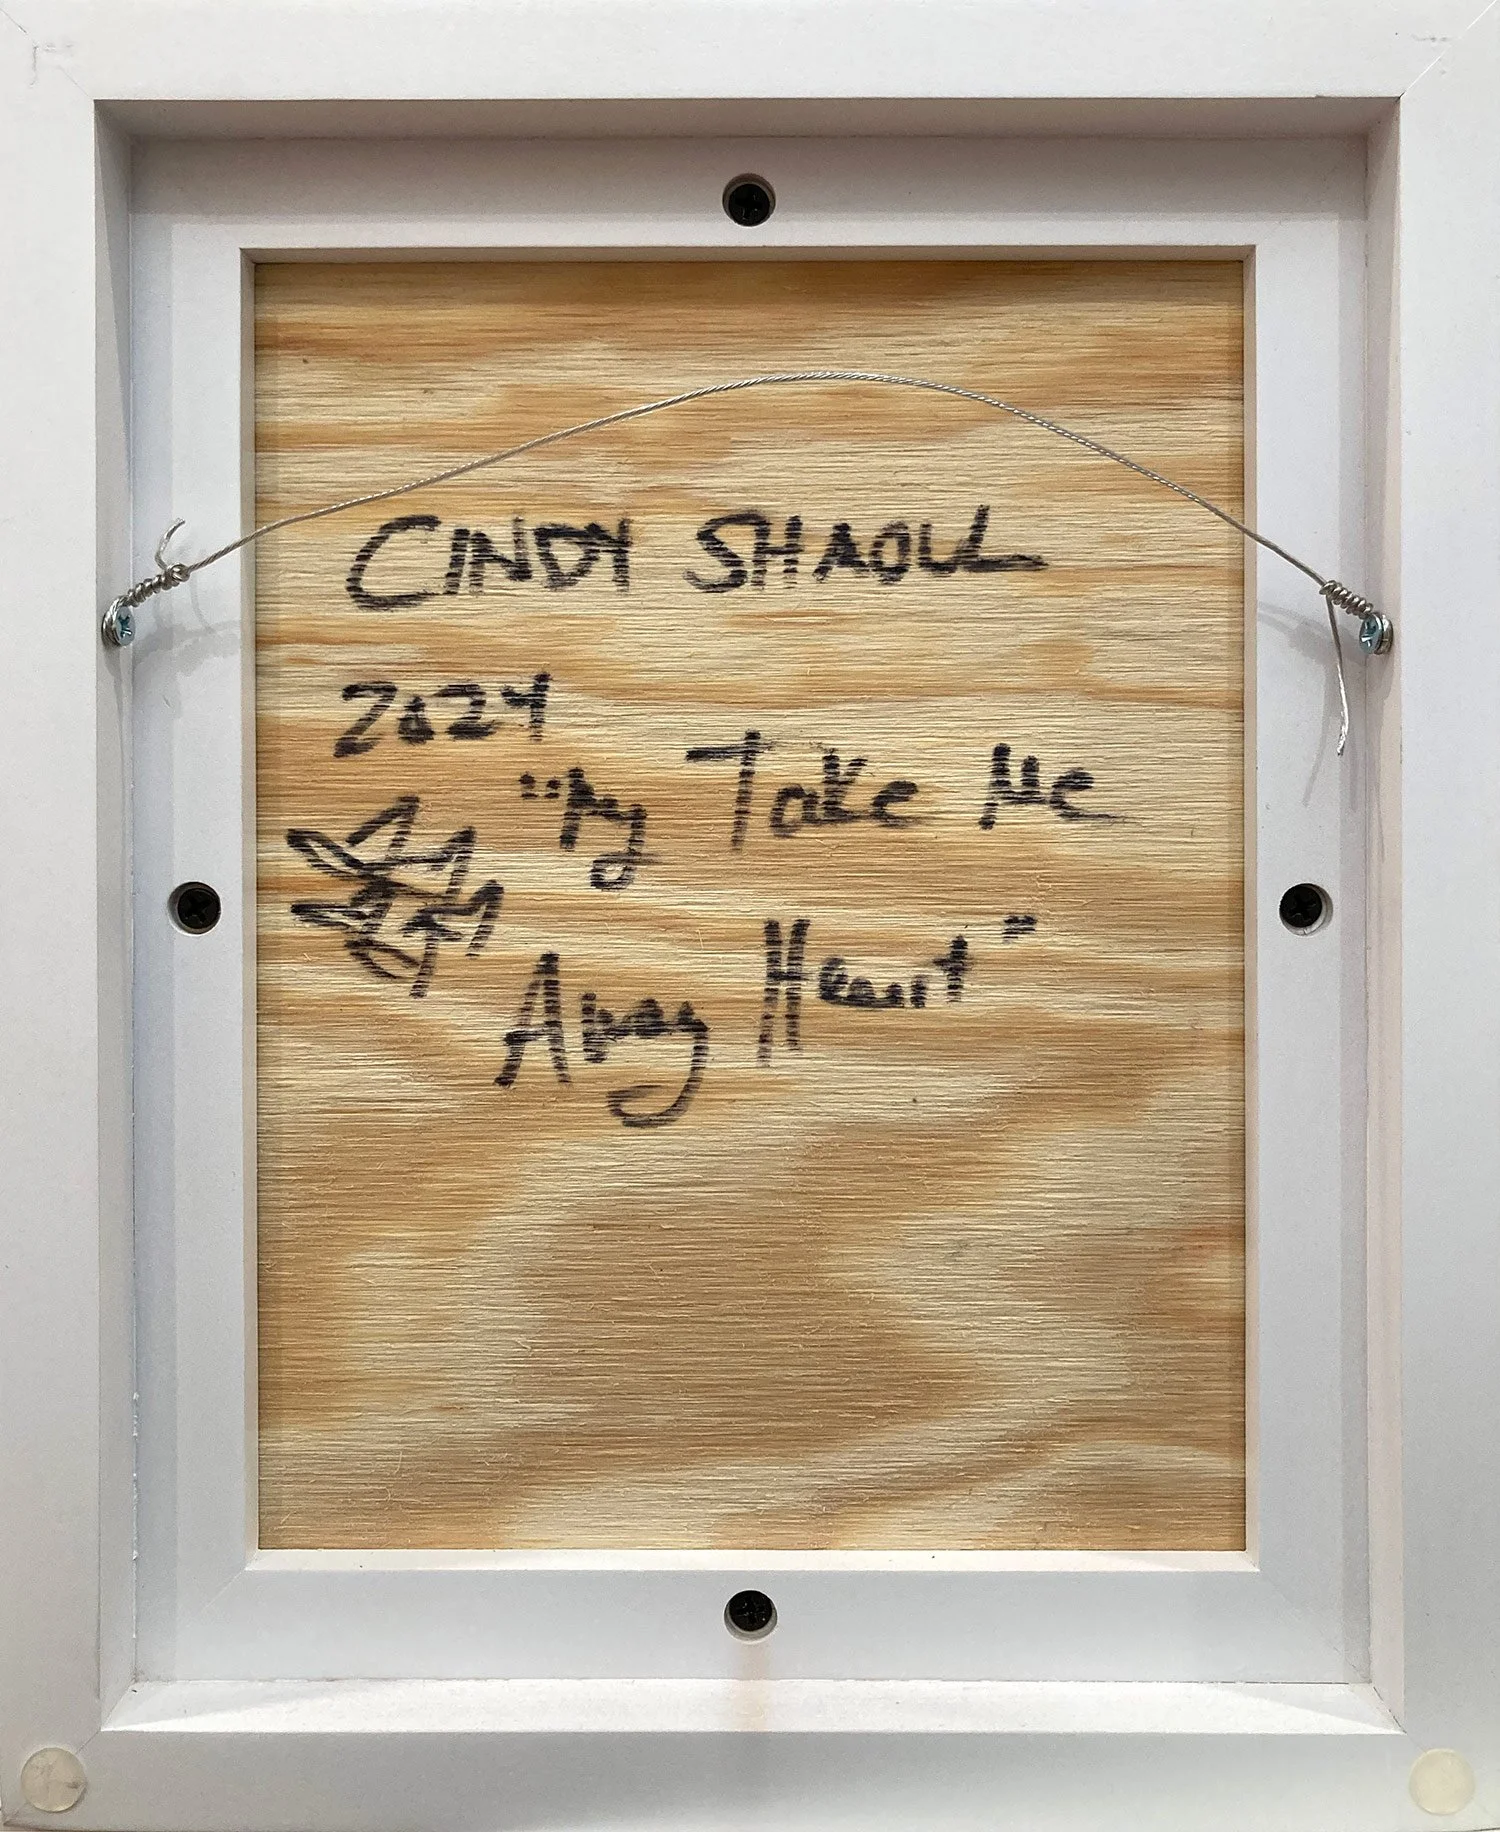 CINDY SHAOUL
2024
"My Take Me
Away Heart"